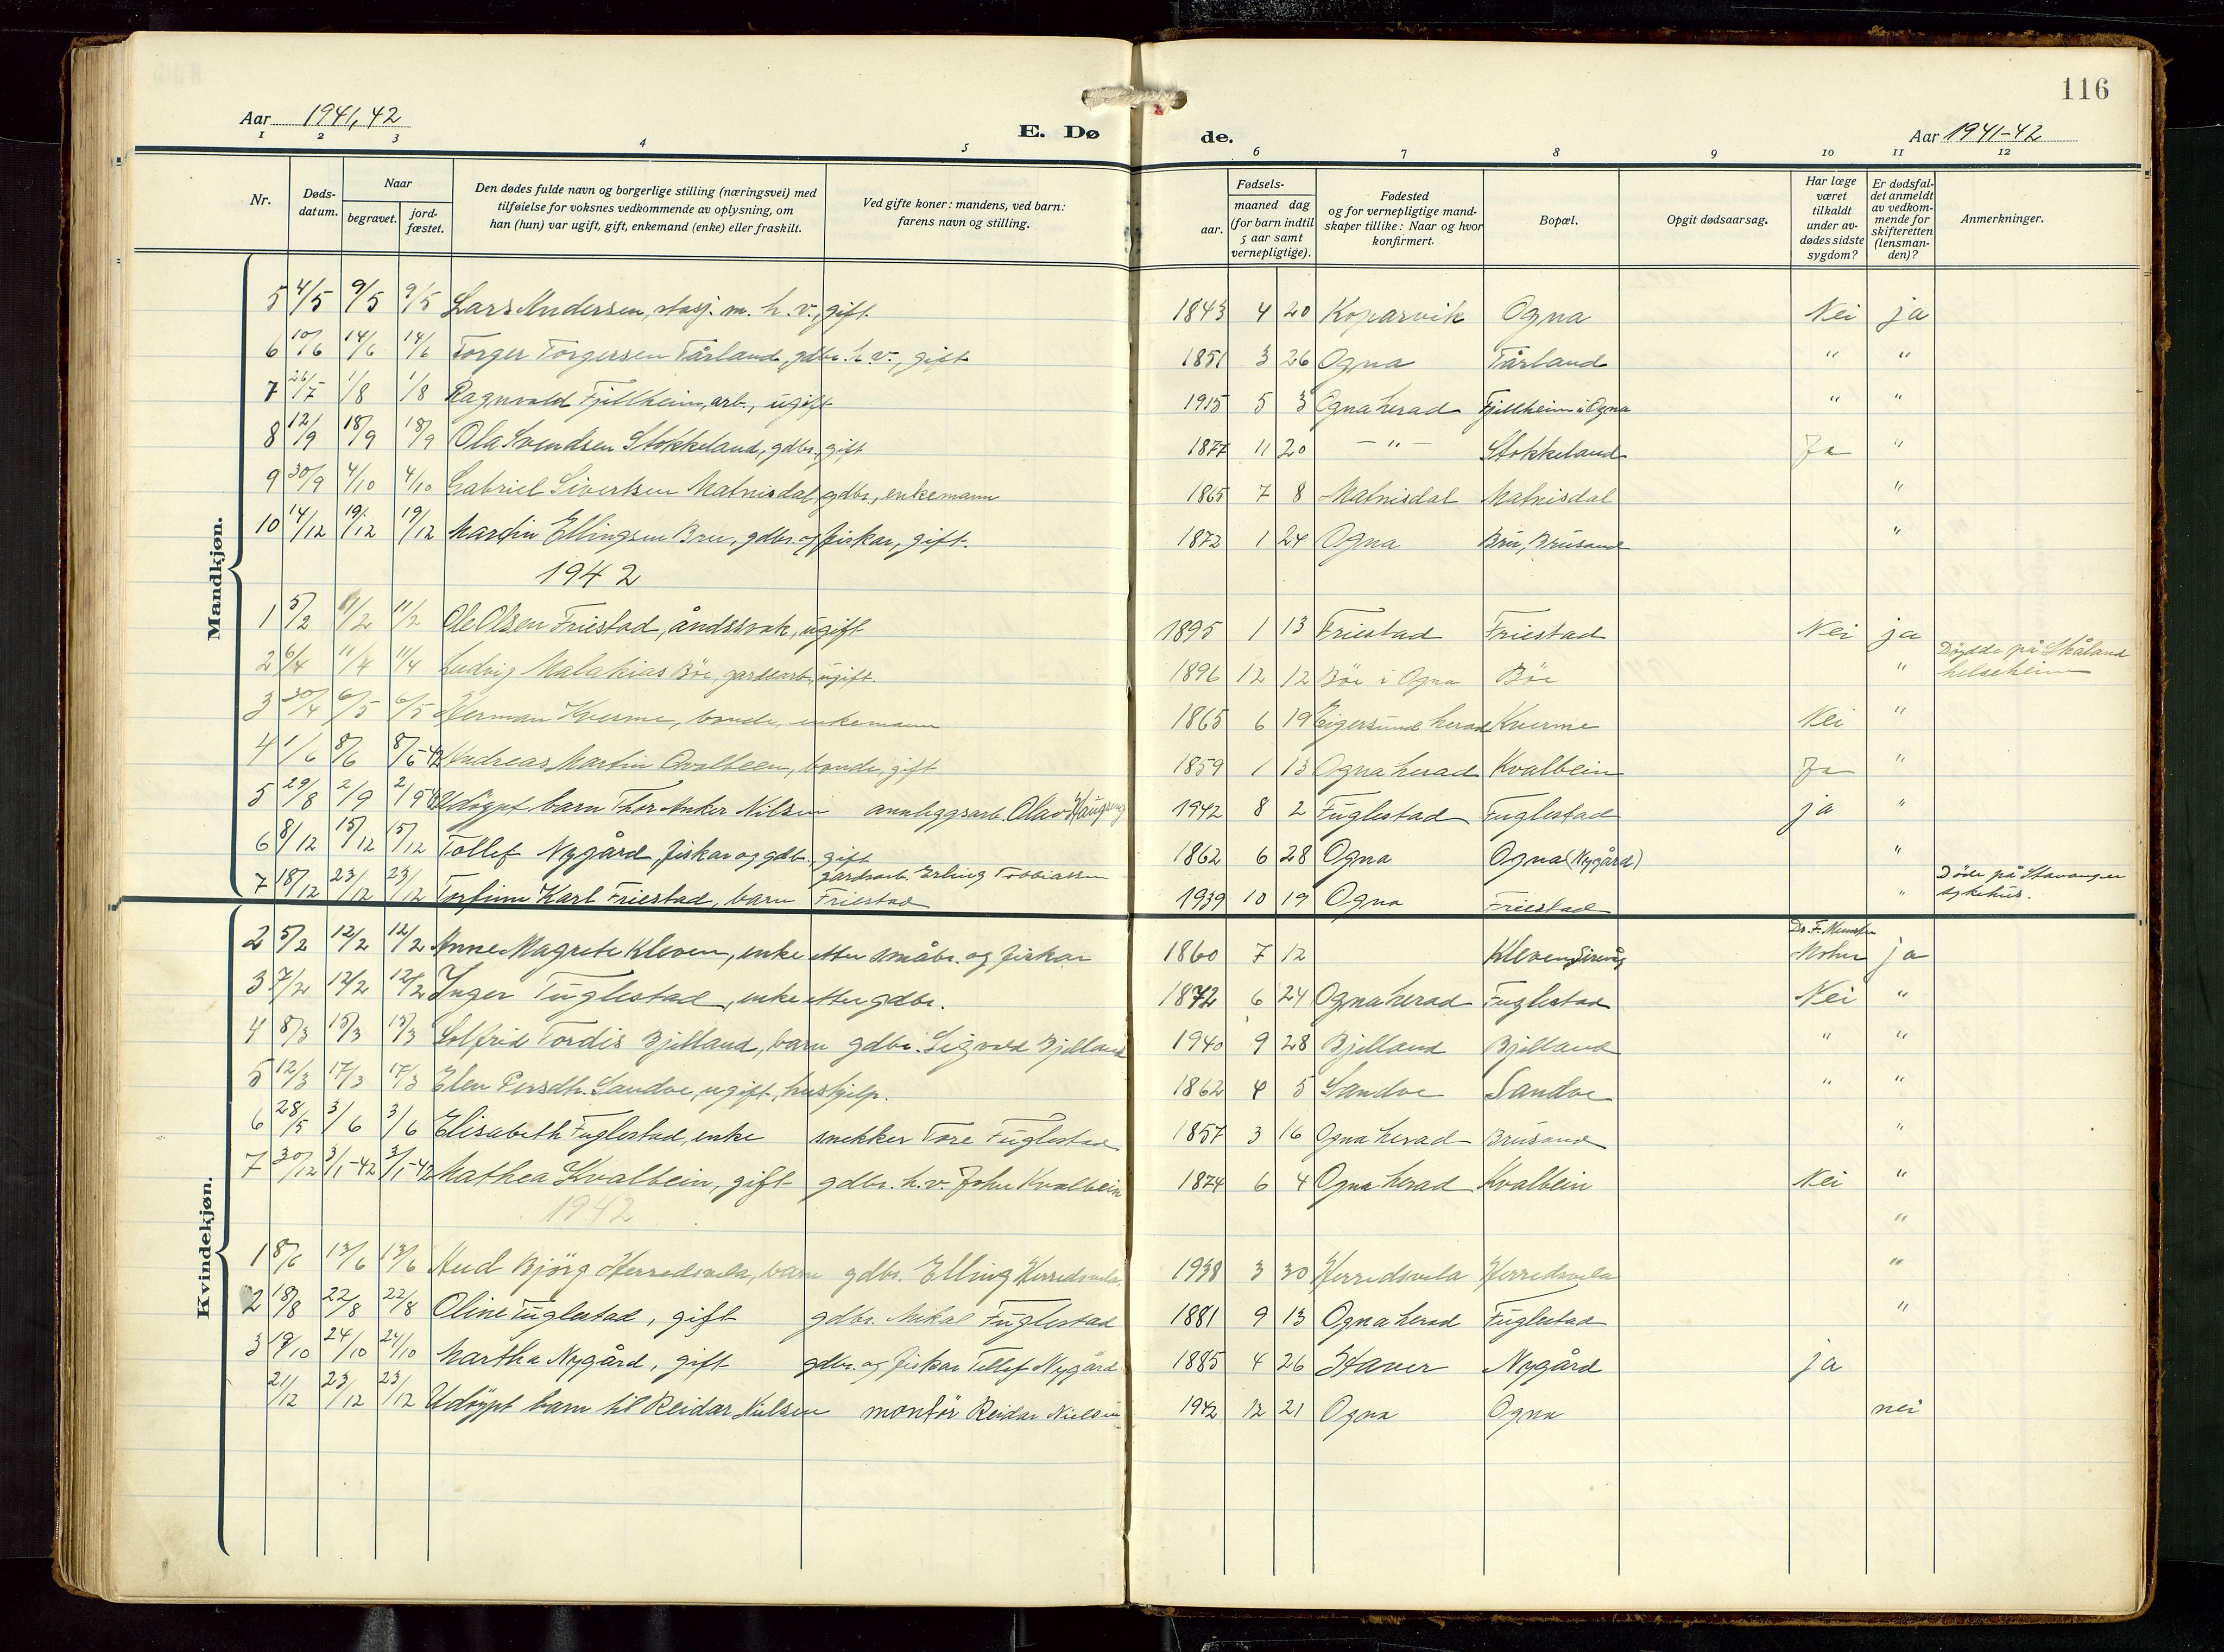 116
Aar 1941,42
E. Dø de.
Aar 1941-42
1 2 3 4 5 6 7 8 9 10 11 12
Nr.
Døds-datum.
Naar
begravet.
jord-fæstet.
Den dødes fulde navn og borgerlige stilling (næringsvei) med
tilføielse for voksnes vedkommende av oplysning, om
han (hun) var ugift, gift, enkemand (enke) eller fraskilt.
Ved gifte koner: mandens, ved barn:
farens navn og stilling.
Fødsels-
aar.
maaned dag
(for barn indtil
5 aar samt
vernepligtige).
Fødested
og for vernepligtige mand-
skaper tillike: Naar og hvor
konfirmert.
Bopæl.
Opgit dødsaarsag.
Har læge
været
tilkaldt
under av-
dødes sidste
sygdom?
Er dødsfal-
det anmeldt
av vedkom-
mende for
skifteretten
(lensman-
den)?
Anmerkninger.
Mandkjøn.
5 4/5 9/5 9/5 Lars Andersen, stasj. m. h. v., gift 1843 4 20 Koparvik Ogna Nei ja
6 10/6 14/6 14/6 Torger Torgersen Tårland, gdbr. h. v., gift 1851 3 26 Ogna Tårland " "
7 26/7 1/8 1/8 Ragnvald Fjellheim, arb., ugift 1915 5 3 Ogna herad Fjellheim i Ogna " "
8 12/9 18/9 18/9 Ola Svendsen Stokkeland, gdbr., gift 1877 11 20 - " - Stokkeland Ja "
9 30/9 4/10 4/10 Gabriel Sivertsen Matnisdal, gdbr., enkemann 1865 7 8 Matnisdal Matnisdal "
10 14/12 19/12 19/12 Martin Ellingsen Bru, gdbr. og fiskar, gift. 1872 1 24 Ogna Bru, Brusand "
1942
1 5/2 11/2 11/2 Ole Olsen Friestad, åndssvak, ugift 1895 1 13 Friestad Friestad Nei ja
2 6/4 11/4 11/4 Ludvig Malakias Bøe, gardsarb., ugift. 1896 12 12 Bøe i Ogna Bøe " Døydde på Skåland helseheim
3 30/4 6/5 6/5 Herman Kverme, bonde, enkemann 1865 6 19 Eigersund herad Kverme Nei "
4 1/6 8/6 8/6-42 Andreas Martin Qvalbeen, bonde, gift 1859 1 13 Ogna herad Kvalbein Ja "
5 29/8 2/9 2/9-42 Udøypt barn Thor Anker Nilsen anleggsarb. Olav 1942 8 2 Fuglestad Fuglestad ja "
6 8/12 15/12 15/12 Tollef Nygård, fiskar og gdbr., gift 1862 6 28 Ogna Ogna (Nygård) "
7 18/12 23/12 23/12 Torfinn Karl Friestad, barn gardsarb. Erling Tobbiassen Friestad 1939 10 19 Ogna Friestad " Døde på Stavanger sykehus.
Kvindekjøn.
2 5/2 12/2 12/2 Anne Magrete Kleven, enke etter småbr. og fiskar 1860 7 12 Kleven, Sirevåg Dr. F. Mohn ja
3 7/2 12/2 12/2 Inger Fuglestad, enke etter gdbr. 1872 6 24 Ogna herad Fuglestad Nei "
4 8/3 15/3 15/3 Solfrid Tordis Bjelland, barn gdbr. Sigvald Bjelland 1940 9 28 Bjelland Bjelland " "
5 12/3 17/3 17/3 Elen Persdtr. Sandve, ugift, hushjelp. 1862 4 5 Sandve Sandve " "
6 28/5 3/6 3/6 Elisabeth Fuglestad, enke snekker Tore Fuglestad 1857 3 16 Ogna herad Brusand "
7 30/12 3/1-42 3/1-42 Mathea Kvalbein, gift gdbr. h. v. John Kvalbein 1874 6 4 Ogna herad Kvalbein Nei "
1942 "
1 8/6 13/6 13/6 Aud Bjørg Herredsvela, barn gdbr. Elling Herredsvela 1938 3 30 Herredsvela Herredsvela "
2 18/8 22/8 22/8 Oline Fuglestad, gift gdbr. Mikal Fuglestad 1881 9 13 Ogna herad Fuglestad "
3 19/10 24/10 24/10 Martha Nygård, gift gdbr. og fiskar Tollef Nygård 1885 4 26 Nygård ja
21/12 23/12 23/12 Udøypt barn til Reidar Nielsen montør Reidar Nielsen 1942 12 21 Ogna Ogna nei